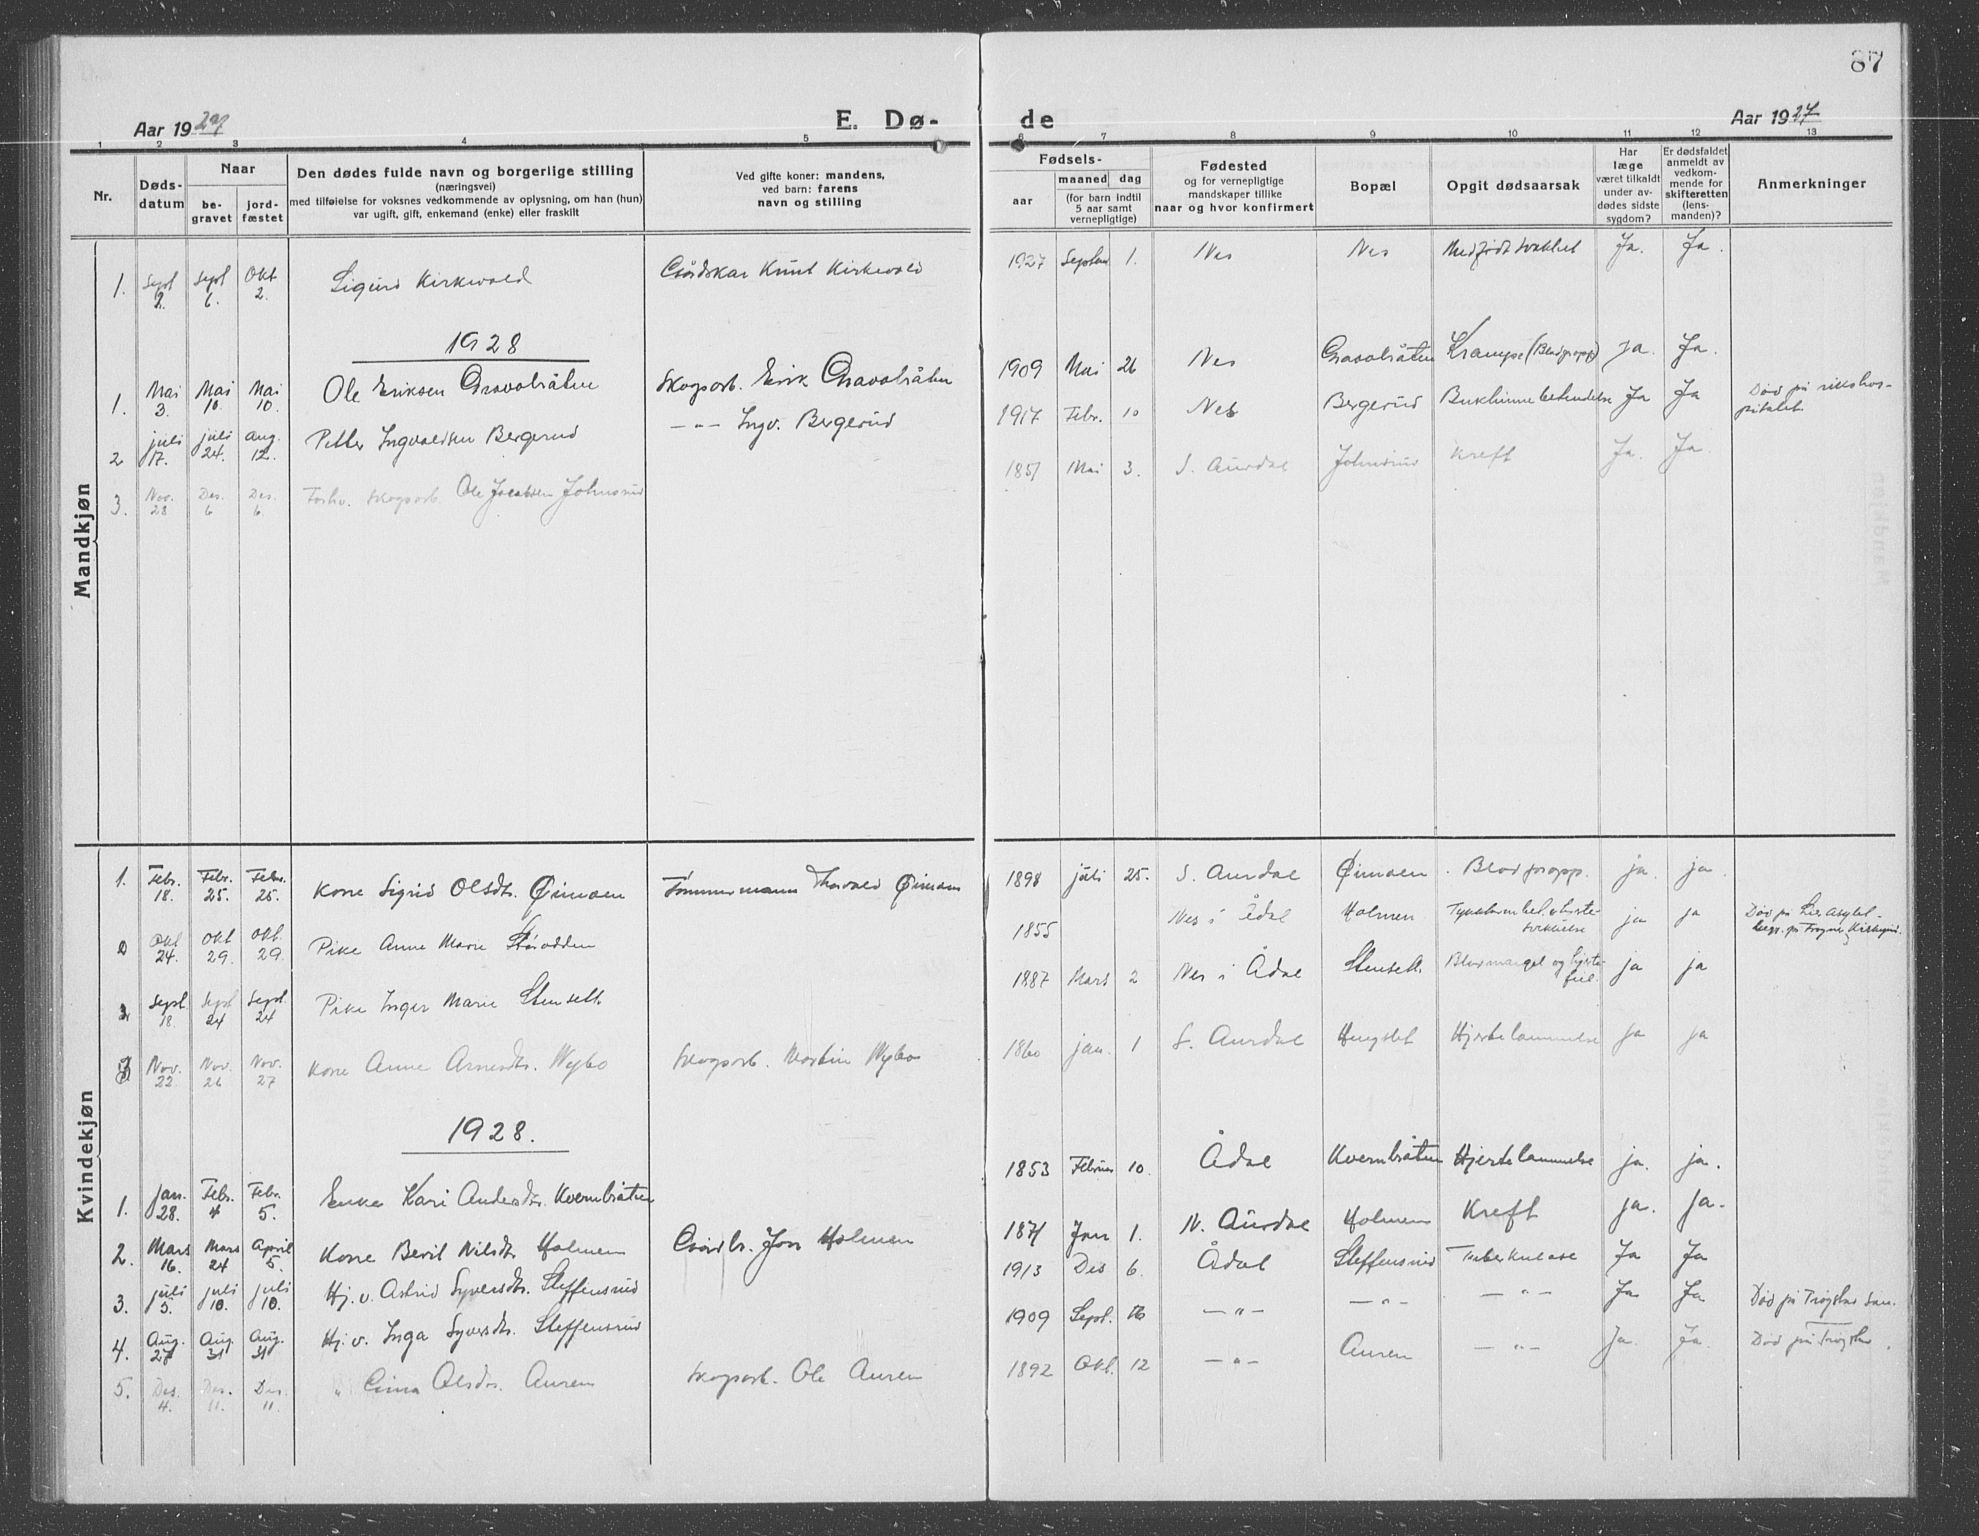 87
Aar 1927
E. Dø-
de
Aar 1927
1 2 3 4 5 6 7 8 9 10 11 12 13
Nr.
Døds-
datum
Naar
be-
gravet
jord-
fæstet
Den dødes fulde navn og borgerlige stilling
(næringsvei)
med tilføielse for voksnes vedkommende av oplysning, om han (hun)
var ugift, gift, enkemand (enke) eller fraskilt
Ved gifte koner: mandens,
ved barn: farens
navn og stilling
Fødsels-
aar
maaned dag
(for barn indtil
5 aar samt
vernepligtige)
Fødested
og for vernepligtige
mandskaper tillike
naar og hvor konfirmert
Bopæl
Opgit dødsaarsak
Har
læge
været tilkaldt
under av-
dødes sidste
sygdom?
Er dødsfaldet
anmeldt av
vedkom-
mende for
skifteretten
(lens-
manden)?
Anmerkninger
Mandkjøn
1. Sept 2. Sept 6. Okt 2. Sigurd Kirkevold Gårdskar Knut Kirkevold 1927 Septbr 1. Nes Nes Medfødt svakhet Ja. Ja.
1928
1. Mai 3. Mai 10. Mai 10. Ole Eriksen Gravalråten Skogsarb. Erik Gravalråten 1909 Mai 26 Nes Gravalråten Krampe (Blodpropp) ja. Ja.
2 juli 17. juli 24. Aug. 12. Petter Ingvaldsen Bergerud —"— Ingv. Bergerud 1917 Febr. 10 Nes Bergerud Bukhinnebetendelse Ja Ja Død på rikshos-
pitalet
3. Nov. 28 Des. 6 Des. 6. Forhv. skogsarb. Ole Jacobsen Johnsrud 1851 Mai 3. S. Aurdal Johnsrud Kreft Ja. Ja.
Kvindekjøn
1. Febr. 18. Febr. 25. Febr. 25. Kone Sigrid Olsdtr. Øimoen Tømmermann Thorvald Øimoen 1898 juli 25. S. Aurdal Øimoen Blodpropp. ja. ja.
2 Okt 24. Okt 29. Okt. 29. Pike Anne Marie 1855 Nes i Ådal Holmen ja ja Død på Lier Asylet.
begr. på Frogner Kirkegård.
3 Sept. 18. Sept 24 Sept 24 Pike Inger Marie Stensett 1887 Mars 2 Nes i Ådal Stensett Blodmangel og hjerte-
feil. ja ja
Nov. 22. Nov. 26 Nov. 27 Kone Anne Arnesdtr. Nybo Skogsarb. Martin Nybo 1860 jan. 1 S. Aurdal Hengslet Hjertelammelse ja ja
1928.
1. Jan. 28. Febr. 4 Febr. 5. Enke Kari Andersdtr. Kvernbråten 1853 Februar 10. Ådal Kvernbråten Hjertelammelse ja. ja.
2. Mars 16. Mars 24 April 5. Kone Berit Nilsdtr. Holmen Gårdbr. Jon Holmen 1871 Jan 1. N. Aurdal Holmen Kreft ja. ja.
3. juli 5. juli 10. juli 10. Hj. v. Astrid Syversdtr. Steffensrud 1913 Des 6. Ådal Steffensrud Tuberkulose Ja Ja
4. Aug. 27 Aug. 31 Aug. 31 Hj. v. Inga Syversdtr. Steffensrud 1909 Sept. —"— —"— —"— Ja Ja Død på Trøgstad San.
5. Des. 4. Des. 11. Des. 11. " Olsdtr. Auren Skogsarb. Ole Auren 1892 Okt. 12 —"— Auren —"— Ja. Ja. Død på Trøgstad